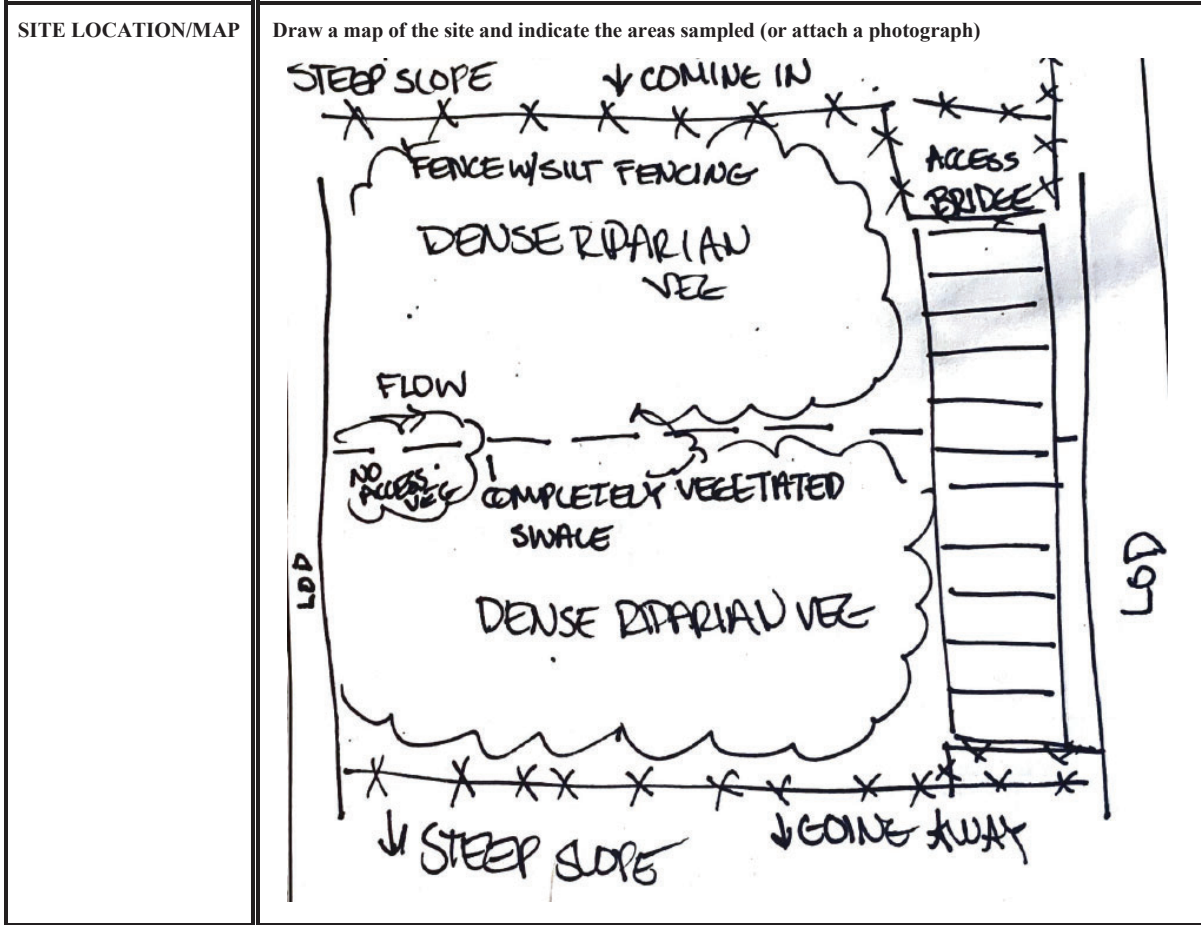 SITE LOCATION/MAP
Draw a map of the site and indicate the areas sampled (or attach a photograph)
STEEP SLOPE
↓ COMING IN
FENCE W/SILT FENCING
ACCESS
BRIDGE
DENSE RIPARIAN
VEG
FLOW
NO
ACCESS.
VEG
COMPLETELY VEGETATED
SWALE
LOD
LOD
DENSE RIPARIAN VEG
↓ STEEP SLOPE
↓ GOING AWAY